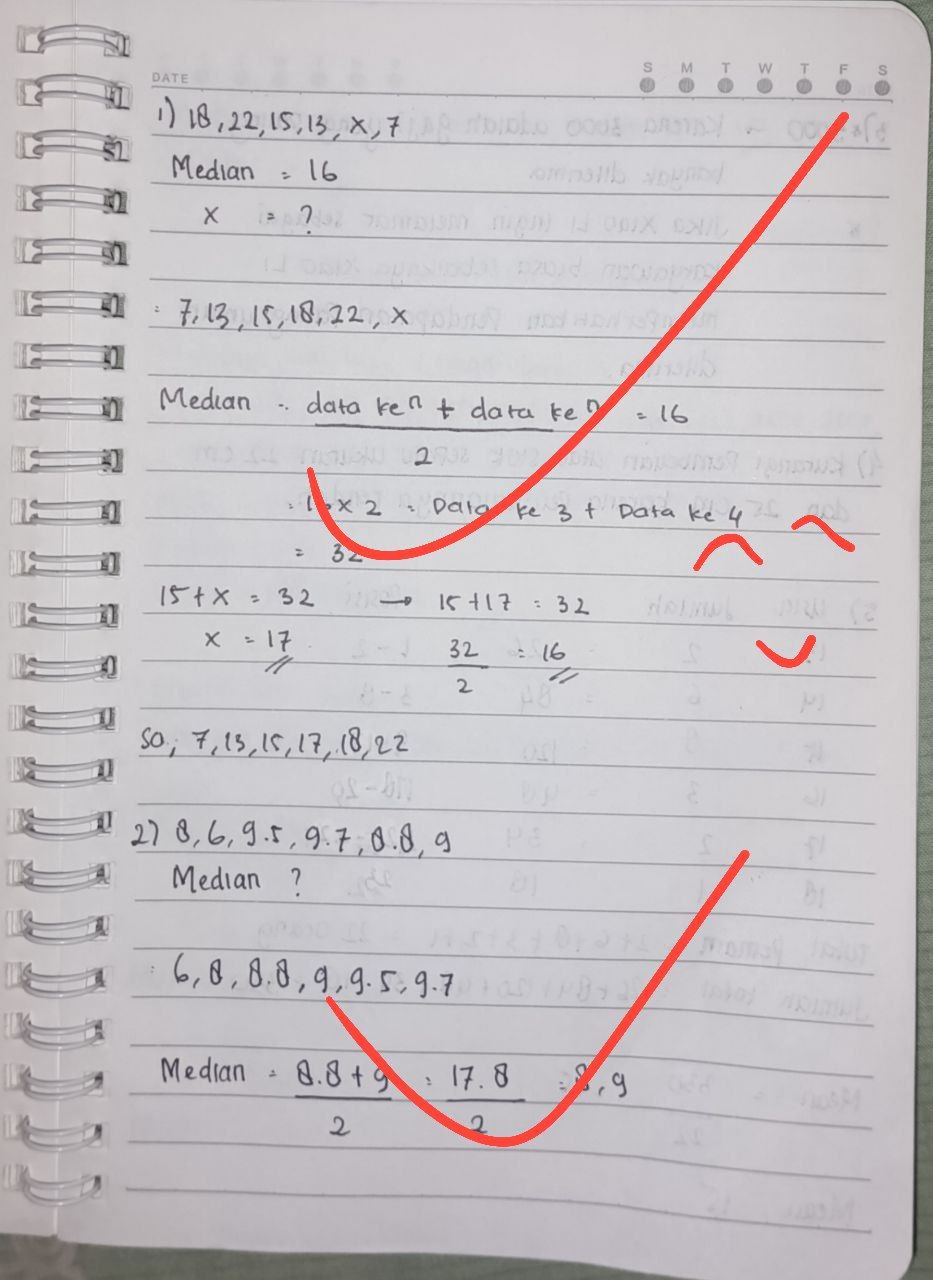 DATE
S M T W T F S
1) 18, 22, 15, 13, x, 7
Median = 16
x = ?
: 7, 13, 15, 18, 22, x
Median = data ke n + data ke n = 16
2
= 16 x 2 = Data ke 3 + Data ke 4
= 32
15 + x = 32 → 15 + 17 = 32
x = 17 32 = 16
2
SO, 7, 13, 15, 17, 18, 22
2) 8, 6, 9.5, 9.7, 8.8, 9
Median ?
: 6, 8, 8.8, 9, 9.5, 9.7
Median = 8.8 + 9 = 17.8 = 8,9
2 2